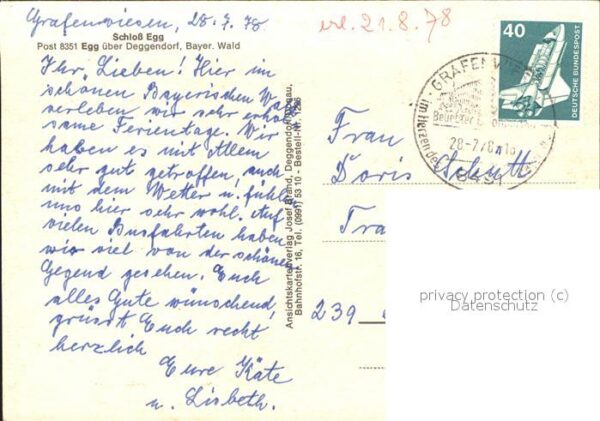 Grafenwiesen, 28.7.78
erl. 21.8.78
Schloß Egg
Post 8351 Egg über Deggendorf, Bayer. Wald
Ihr Lieben! Hier im
schönen Bayerischen Wald
verleben wir sehr erhol-
same Ferientage. Wir
haben es mit Allem
sehr gut getroffen, auch
mit dem Wetter u. fühlen
uns hier sehr wohl. Auf
vielen Busfahrten haben
wir viel von der schönen
Gegend gesehen. Euch
alles Gute wünschend,
grüsst Euch recht
herzlich
Eure Käte
u. Lisbeth.
Ansichtskartenverlag Josef Brand, Deggendorf/Donau,
Bahnhofstr. 16, Tel. (0991) 53 10 - Bestell-Nr.
40
DEUTSCHE BUNDESPOST
GRAFENWIESEN
28-7.78
8491
Frau
Doris Schütt
239
privacy protection (c)
Datenschutz